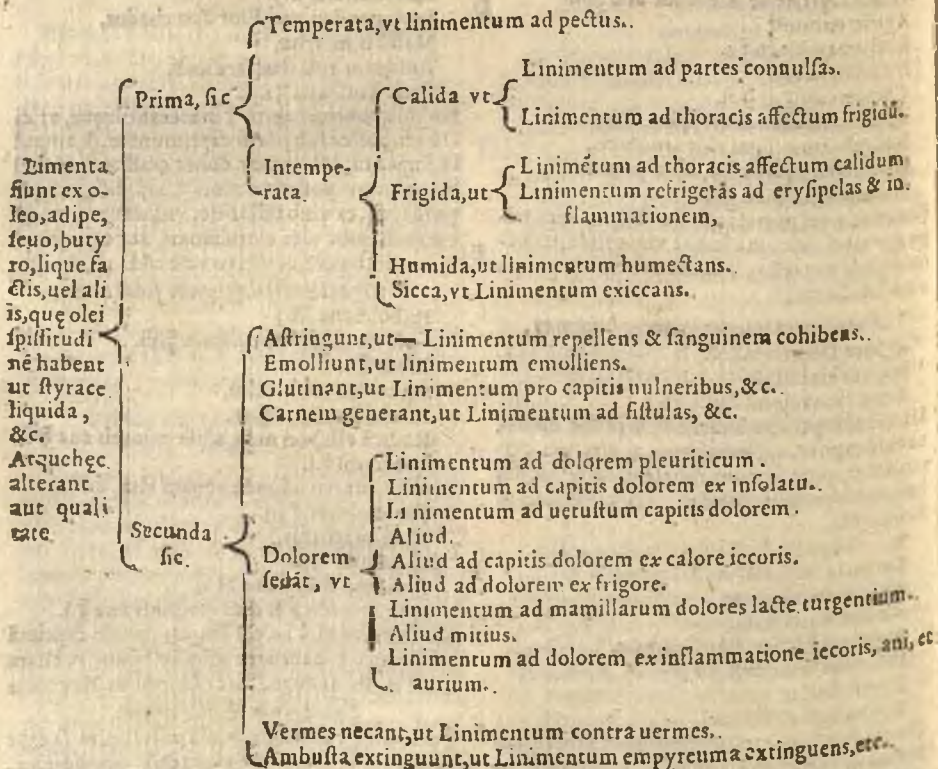 Limenta
fiunt ex o-
leo, adipe,
ſeuo, buty
ro, lique fa
ctis, uel ali
is, quę olei
ſpiſſitudi
nē habent
ut ſtyrace
liquida,
&c.
Atque hęc
alterant
aut quali
tate
Prima, ſic
Temperata, vt linimentum ad pectus.
Intempe-
rata.
Calida vt
Linimentum ad partes conuulſas.
Linimentum ad thoracis affectum frigidū.
Frigida, ut
Linimētum ad thoracis affectum calidum
Linimentum refrigerās ad eryſipelas & in
flammationem,
Humida, ut linimentum humectans.
Sicca, vt Linimentum exiccans.
Secunda
ſic.
Aſtringunt, ut— Linimentum repellens & ſanguinem cohibens.
Emolliunt, ut linimentum emolliens.
Glutinant, ut Linimentum pro capitis uulneribus, &c.
Carnem generant, ut Linimentum ad fiſtulas, &c.
Dolorem
ſedāt, vt
Linimentum ad dolorem pleuriticum.
Linimentum ad capitis dolorem ex inſolatu.
Linimentum ad uetuſtum capitis dolorem.
Aliud.
Aliud ad capitis dolorem ex calore iecoris.
Aliud ad dolorem ex frigore.
Linimentum ad mamillarum dolores lacte turgentium.
Aliud mitius.
Linimentum ad dolorem ex inflammatione iecoris, ani, et
aurium.
Vermes necant, ut Linimentum contra uermes.
Ambuſta extinguunt, ut Linimentum empyreuma extinguens, etc.